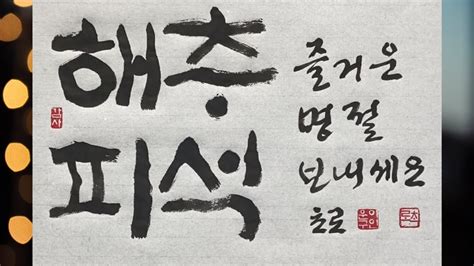 해피
추석
감사
즐거운
명절
보내세요
초로